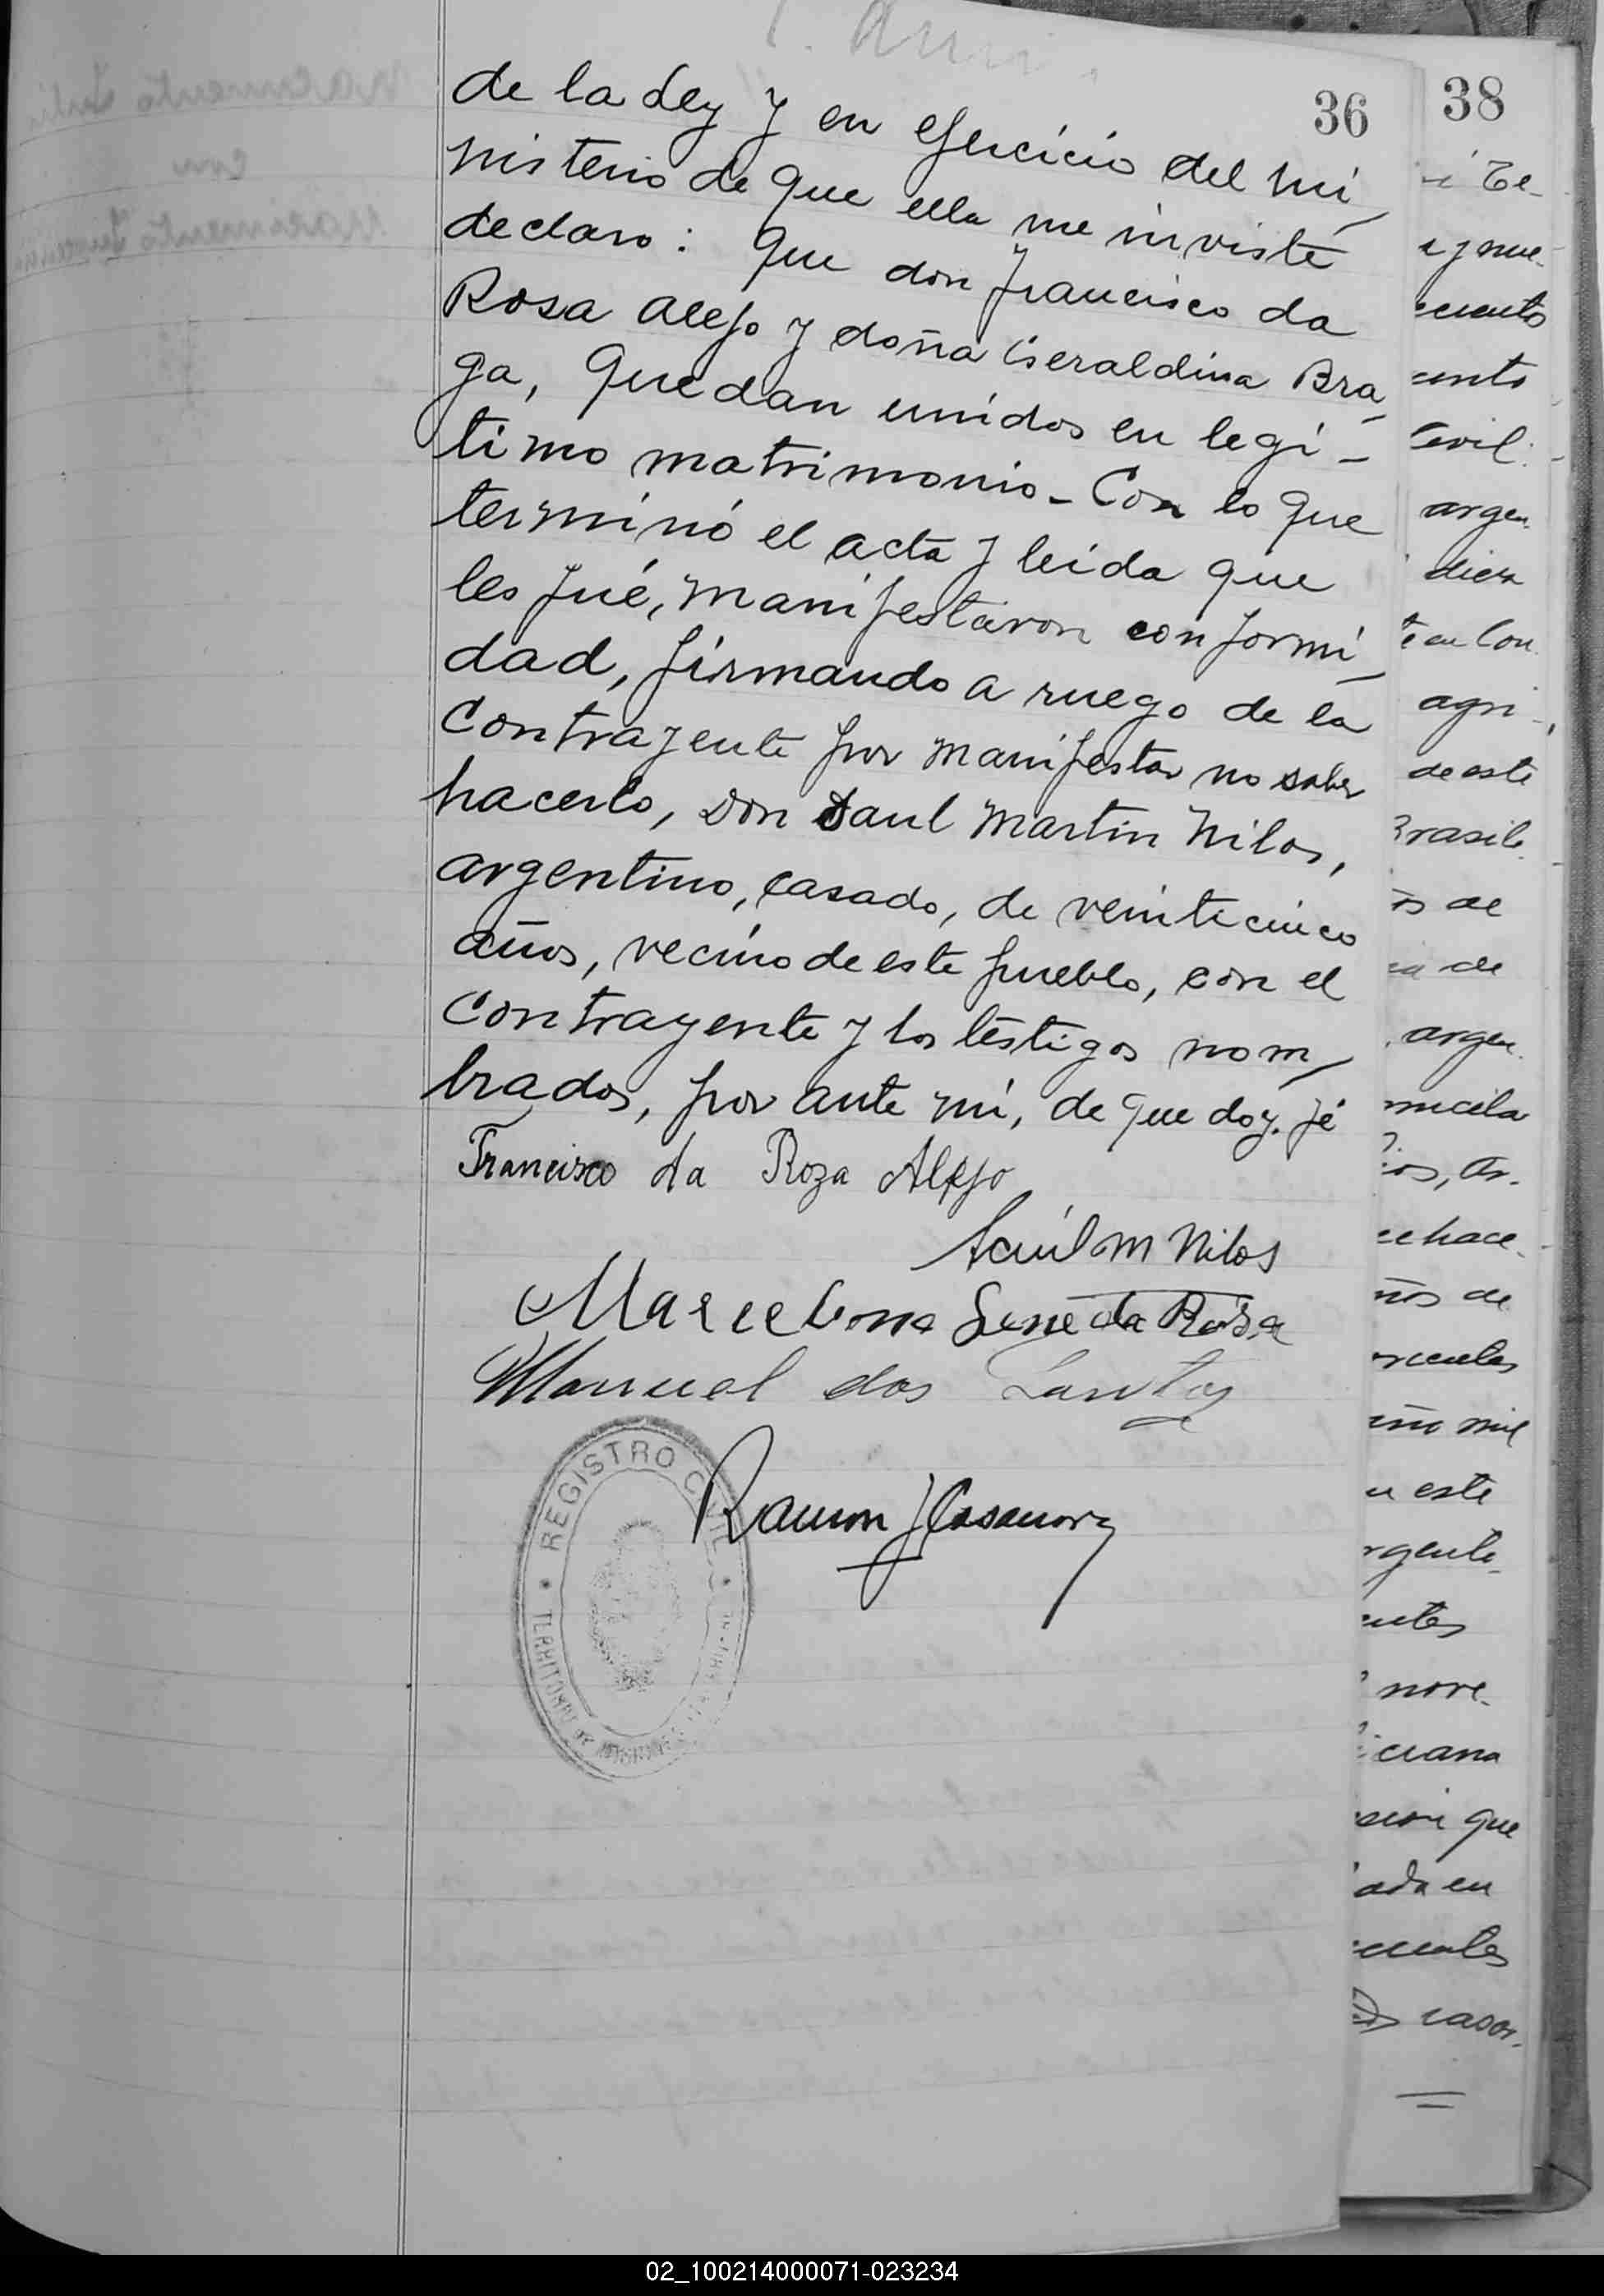 36
de la Ley y en ejercicio del mi
nisterio de que ella me inviste
declaro: Que don Francisco da
Rosa Alejo y doña Geraldina Bra
ga, Quedan unidos en legi-
timo matrimonio - Con lo que
terminó el acta y leida que
les fué, manifestaron conformi
dad, firmando a ruego de la
Contrayente por manifestar no saber
hacerlo, Don Saul Martin Nilos,
argentino, casado, de veinticinco
años, vecino de este pueblo, con el
Contrayente y los testigos nom
brados, por ante mi, de que doy fé
Francisco da Roza Alejo
Saúl M Nilos
da Rosa
Manuel dos Santos
Ramon J Casanova
REGISTRO CIVIL
TERRITORIO DE MISIONES
38
y nue-
cuento
ento
Civil.
argen
diez
te en Con
agri-
de este
Brasile
os de
de
argen
os, Ar-
e hace
ños de
año mil
n este
rgente
entes
nove-
que
ada en
casos
02_100214000071-023234